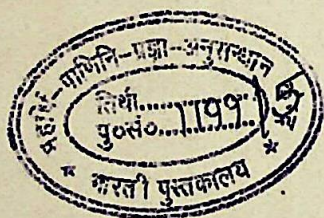 महर्षि-पाणिनि-प्रज्ञा-अनुसन्धान
तिथी..............
पु०सं०....1199
* भारती पुस्तकालय *